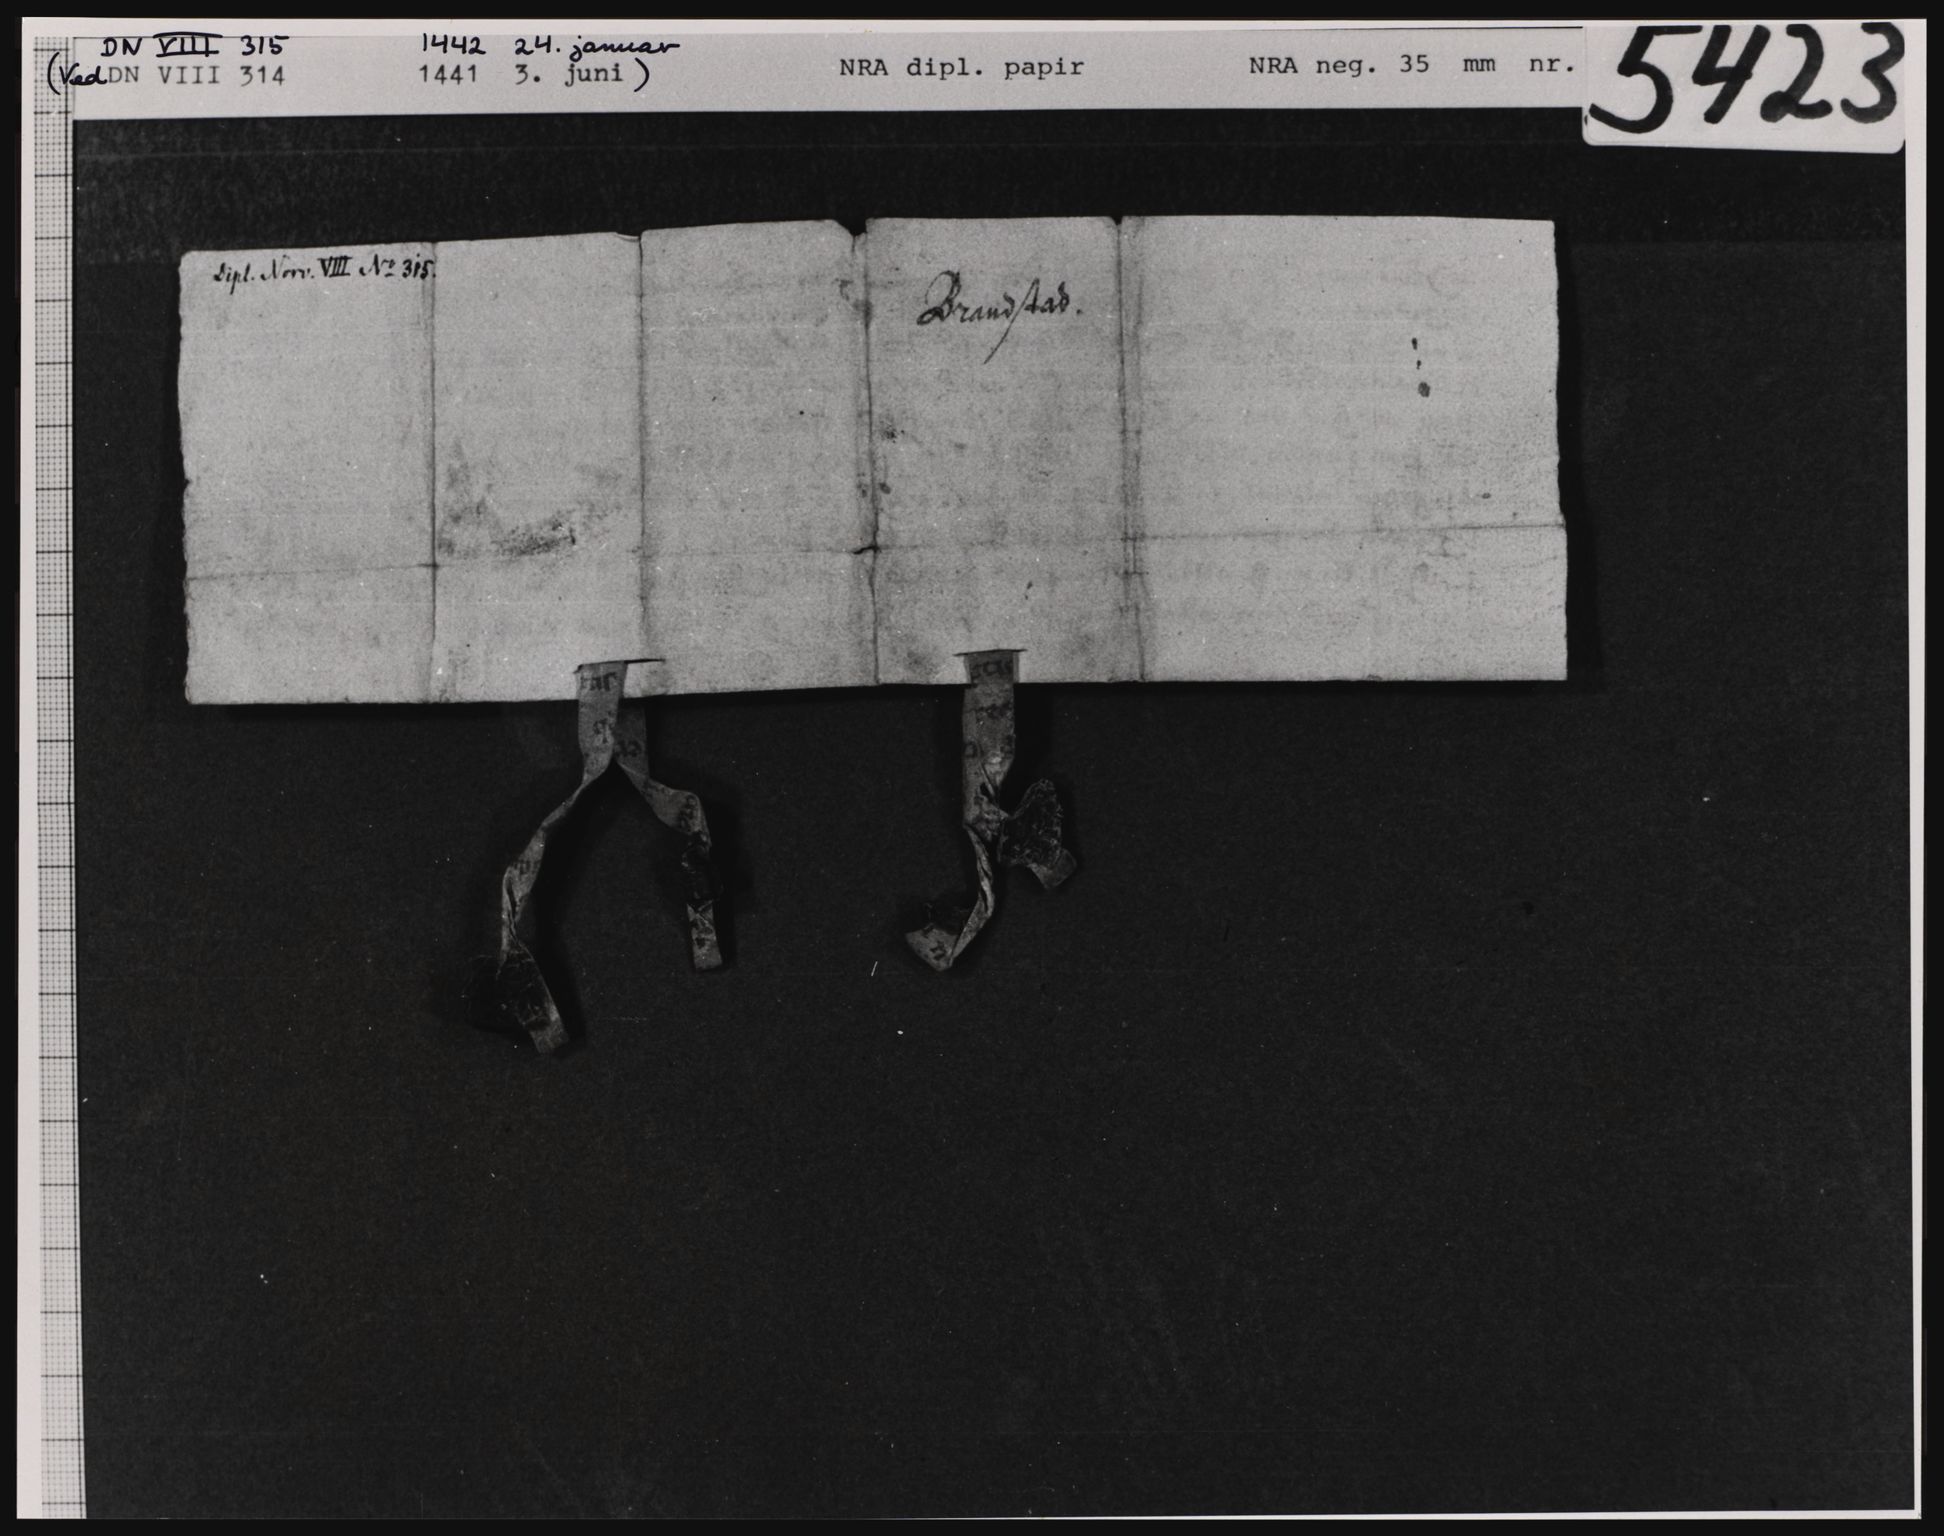 DN VIII 315 1442 24. januar
(Ved DN VIII 314 1441 3. juni) NRA dipl. papir NRA neg. 35 mm nr. 5423
Dipl. Norv. VIII No 315.
Brandstad.